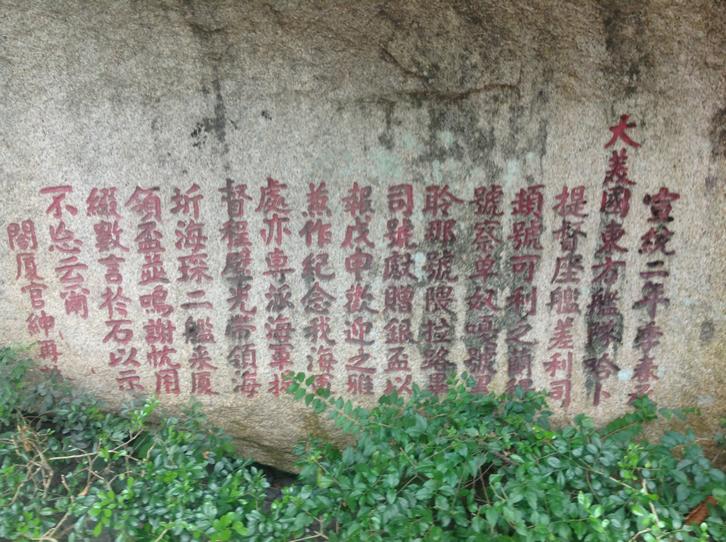 宣統二年季春
大美國東方艦隊哈卜
提督座艦差利司
頓號可利之蘭
號察單奴嘎號
聆那號隈拉路
司號獻贈銀盃以
報戊申歡迎之雅
兼作紀念我海軍
處亦專派海軍
督程璧光帶領海
圻海琛二艦來厦
領盃並鳴謝忱用
綴數言於石以示
不忘云爾
閤厦官紳再